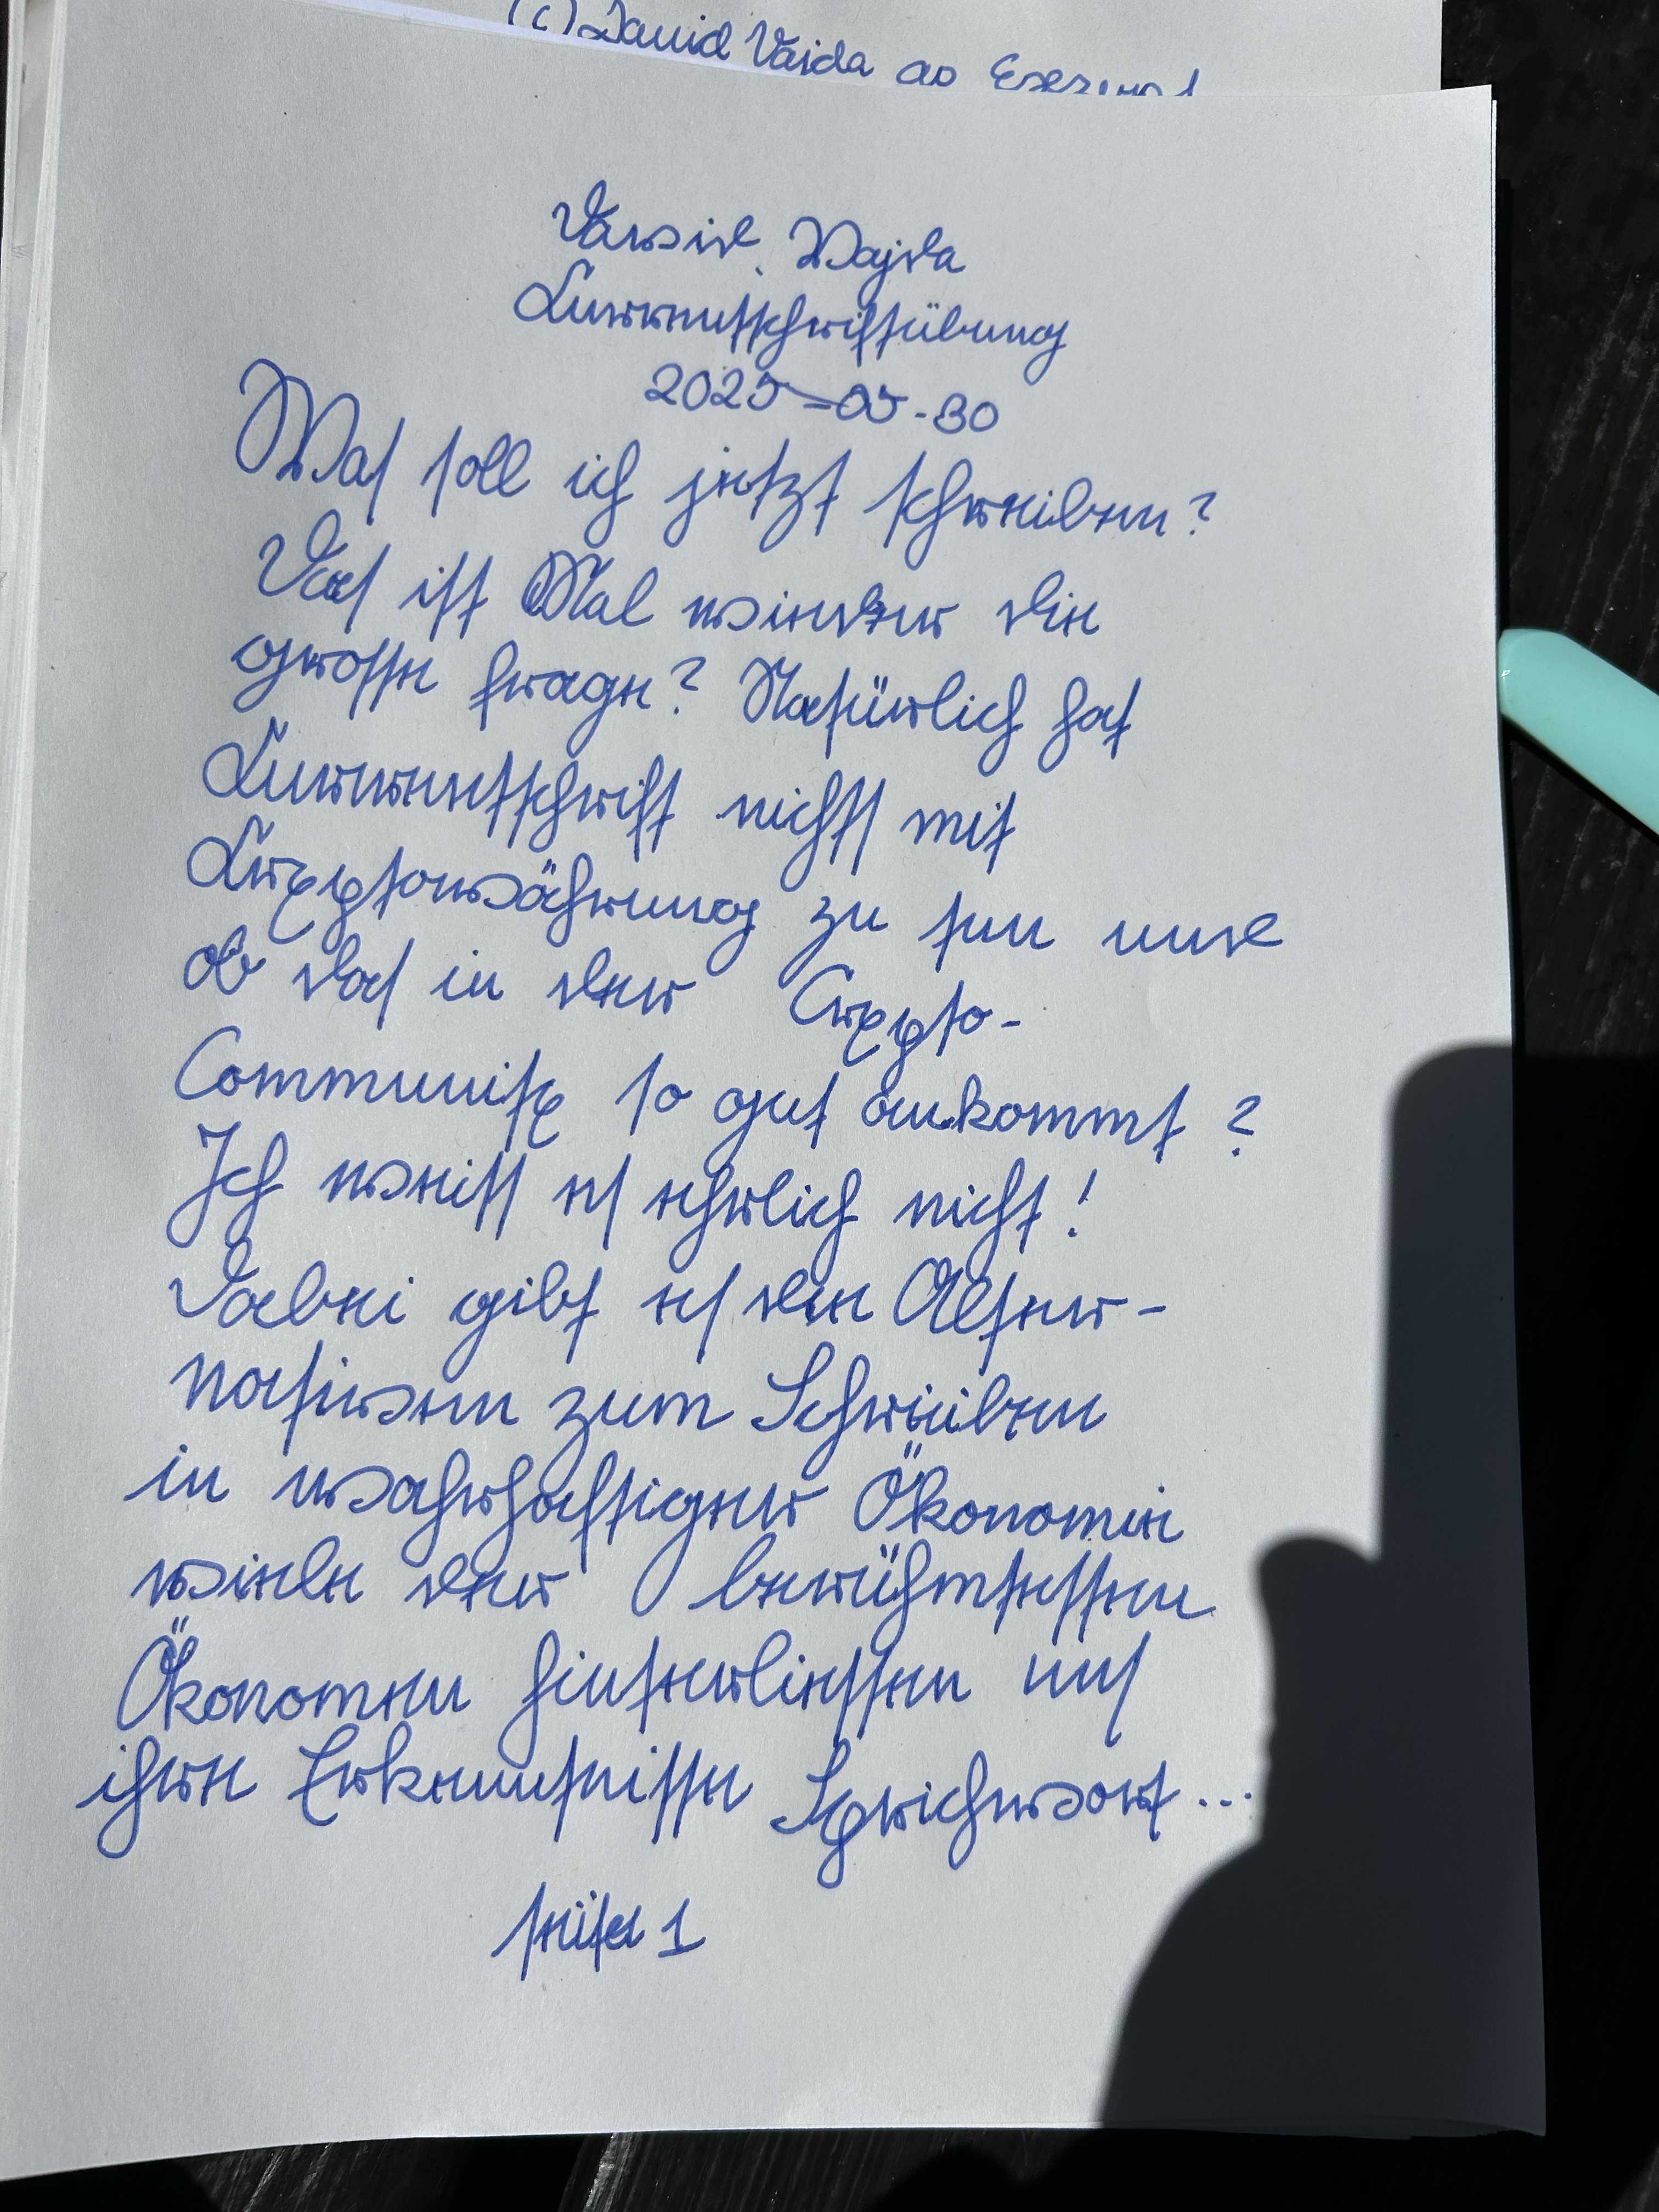 (c) David Vajda
David Vajda
Kurrentschriftübung
2025-05-30
Was soll ich jetzt schreiben?
Das ist Mal wieder die
grosse frage? Natürlich hat
Kurrentschrift nichts mit
Kryptowährung zu tun und
ob das in der Crypto-
Community so gut ankommt?
Ich weiss es ehrlich nicht!
Dabei gibt es den Alter-
nativen zum Schreiben
in wahrhaftiger Ökonomie
viele der berühmtesten
Ökonomen hinterliessen uns
ihre Erkenntnisse Sprichwort...
seite 1